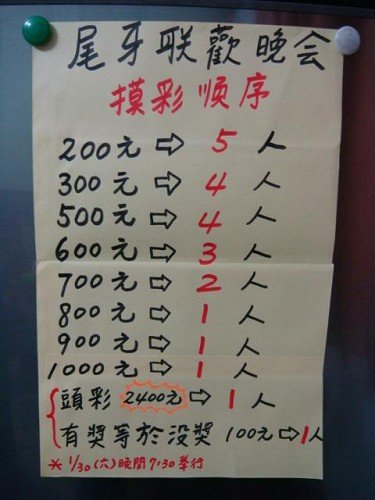 尾牙联歡晚会
摸彩順序
200元⇨5人
300元⇨4人
500元⇨4人
600元⇨3人
700元⇨2人
800元⇨1人
900元⇨1人
1000元⇨1人
頭彩 2400元⇨1人
有獎等於没獎 100元⇨1人
* 1/30(六)晚間7:30舉行